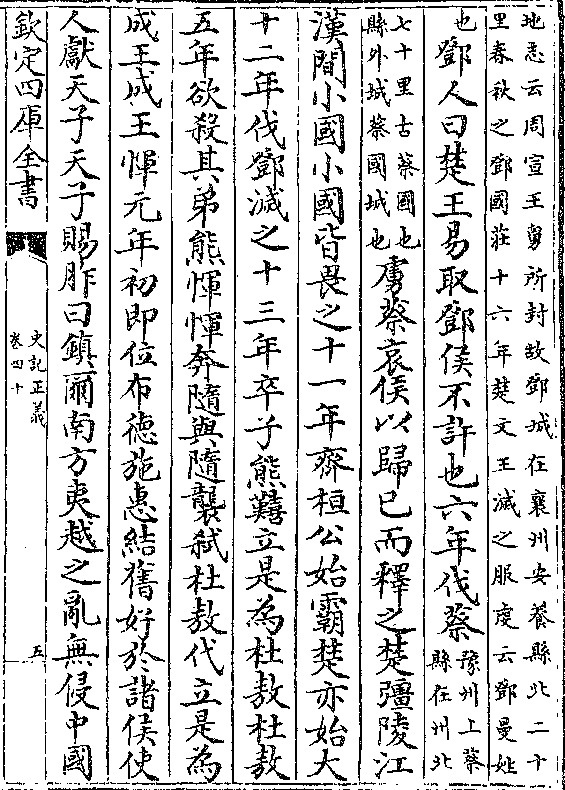 地志云周宣王舅所封故鄧城在襄州安養縣北二十
里春秋之鄧國莊十六年楚文王滅之服虔云鄧曼姓
也鄧人曰楚王易取鄧侯不許也六年伐蔡豫州上蔡
縣在州北
七十里古蔡國也
縣外城蔡國城也虜蔡哀侯以歸已而釋之楚彊陵江
漢間小國小國皆畏之十一年齊桓公始霸楚亦始大
十二年伐鄧滅之十三年卒子熊囏立是為杜敖杜敖
五年欲殺其弟熊惲惲奔隨與隨襲弑杜敖代立是為
成王成王惲元年初即位布德施惠結舊好於諸侯使
人獻天子天子賜胙曰鎮爾南方夷越之亂無侵中國
欽定四庫全書
史記正義
卷四十
五